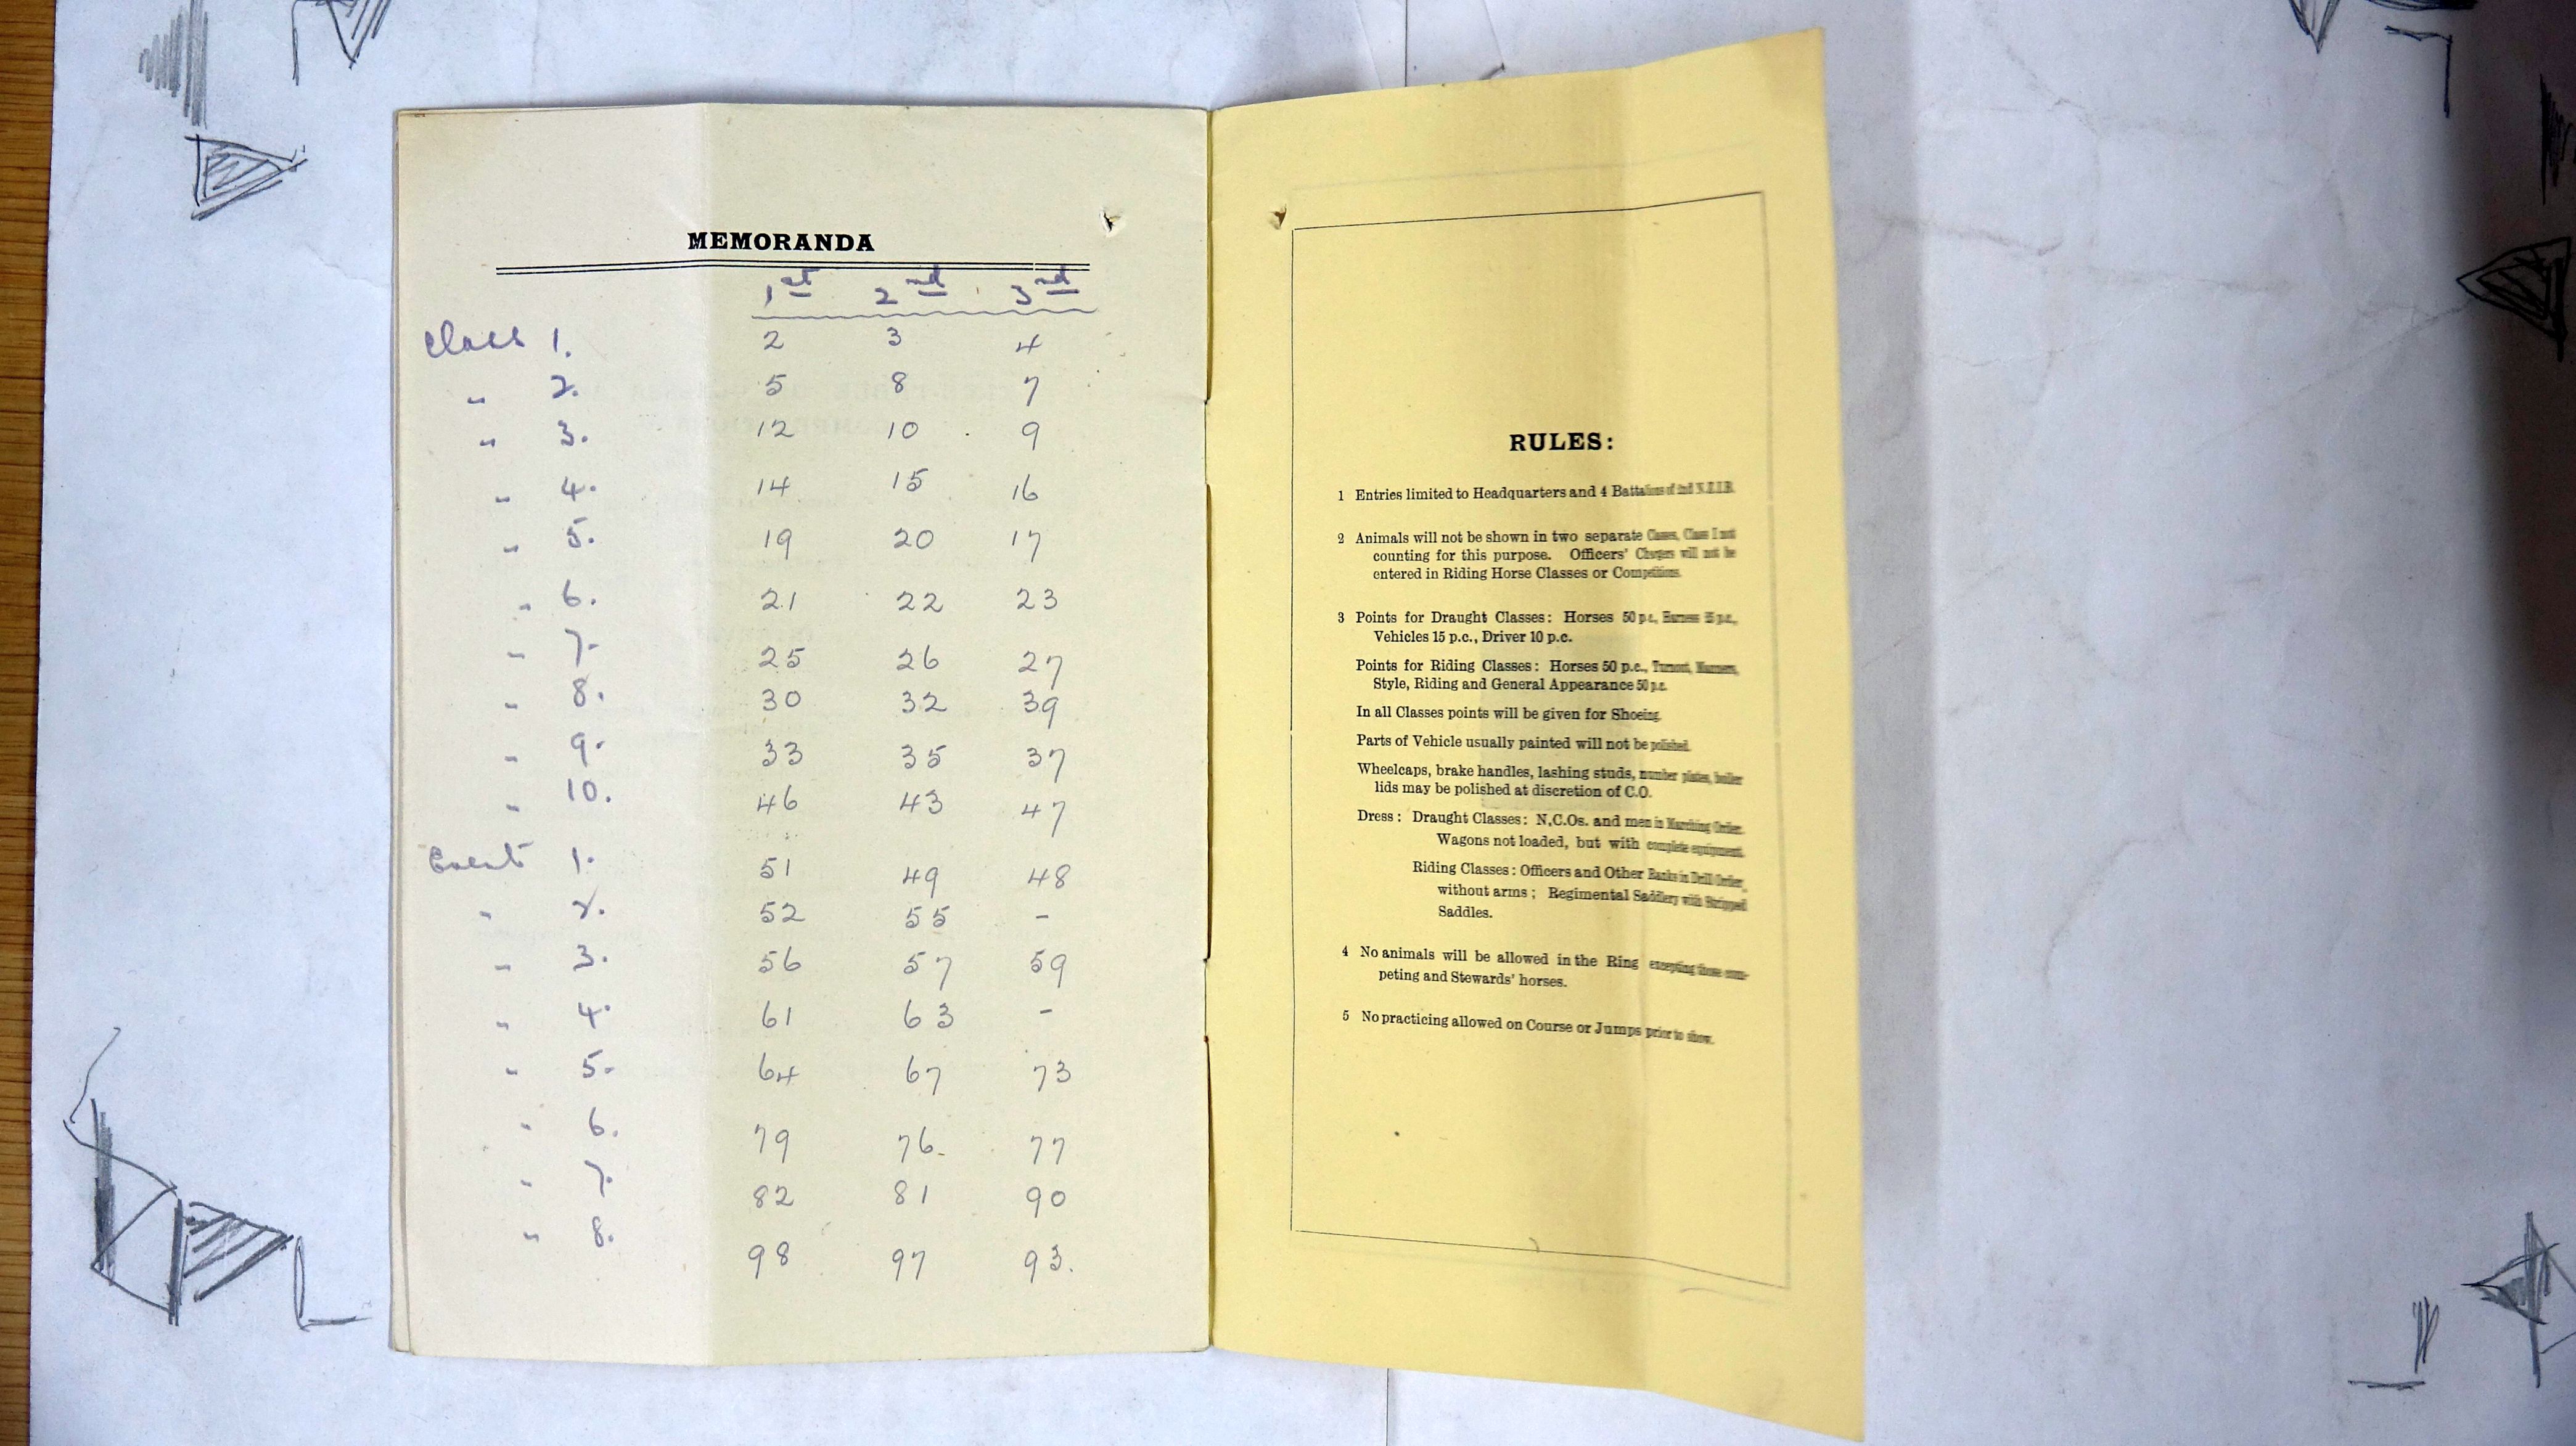 MEMORANDA
1st 2nd 3rd
Class 1. 2 3 4
" 2. 5 8 7
" 3. 12 10 9
" 4. 14 15 16
" 5. 19 20 17
" 6. 21 22 23
" 7. 25 26 27
" 8. 30 32 39
" 9. 33 35 37
" 10. 46 43 47
Event 1. 51 49 48
" 2. 52 55 -
" 3. 56 57 59
" 4. 61 63 -
" 5. 64 67 73
" 6. 79 76 77
" 7. 82 81 90
" 8. 98 97 93.
RULES:
1 Entries limited to Headquarters and 4 Battalions of 2nd
2 Animals will not be shown in two separate Classes, Class I not
counting for this purpose. Officers' Chargers will not be
entered in Riding Horse Classes or Competitions.
3 Points for Draught Classes: Horses 50 p.c., Harness 25 p.c.,
Vehicles 15 p.c., Driver 10 p.c.
Points for Riding Classes: Horses 50 p.c., Turnout, Manners,
Style, Riding and General Appearance 50 p.c.
In all Classes points will be given for Shoeing.
Parts of Vehicle usually painted will not be polished.
Wheelcaps, brake handles, lashing studs, number plates, boiler
lids may be polished at discretion of C.O.
Dress: Draught Classes: N.C.Os. and men in Marching Order.
Wagons not loaded, but with complete equipment.
Riding Classes: Officers and Other Ranks in Drill Order,
without arms; Regimental Saddlery with Stripped
Saddles.
4 No animals will be allowed in the Ring excepting those com-
peting and Stewards' horses.
5 No practicing allowed on Course or Jumps prior to show.